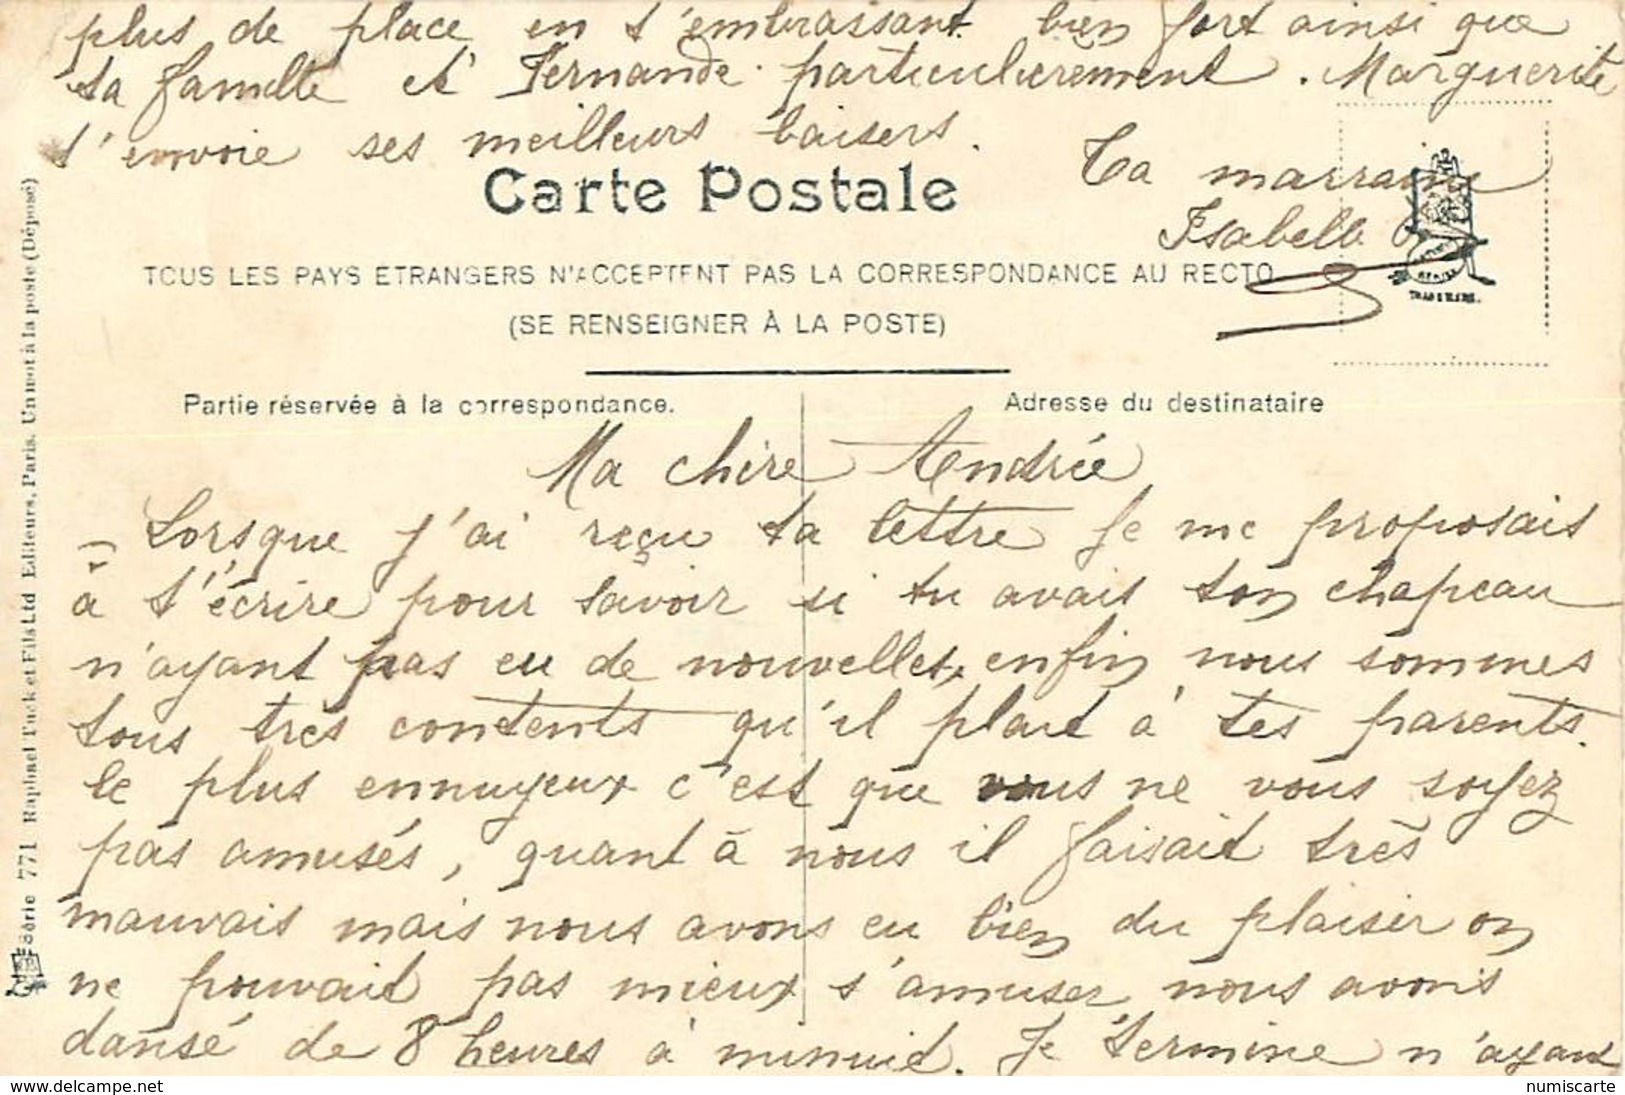 plus de place en t'embrassant bien fort ainsi que
ta famille et Fernande particulièrement. Marguerite
t'envoie ses meilleurs baisers.
Ta marraine
Isabelle
Carte Postale
TOUS LES PAYS ETRANGERS N'ACCEPTENT PAS LA CORRESPONDANCE AU RECTO
(SE RENSEIGNER À LA POSTE)
TRADE MARK.
Partie réservée à la correspondance.
Adresse du destinataire
Ma chère Andrée
Lorsque j'ai reçu ta lettre je me proposais
à t'écrire pour savoir si tu avais ton chapeau
n'ayant pas eu de nouvelles, enfin nous sommes
tous très contents qu'il plait à tes parents.
le plus ennuyeux c'est que vous ne vous soyez
pas amusés, quant à nous il faisait très
mauvais mais nous avons eu bien du plaisir on
ne pouvait pas mieux s'amuser nous avons
dansé de 8 heures à minuit. Je termine n'ayant
Série 771 Raphael Tuck et Fils Ltd Editeurs, Paris. Un mot à la poste (Déposé)
www.delcampe.net
numiscarte